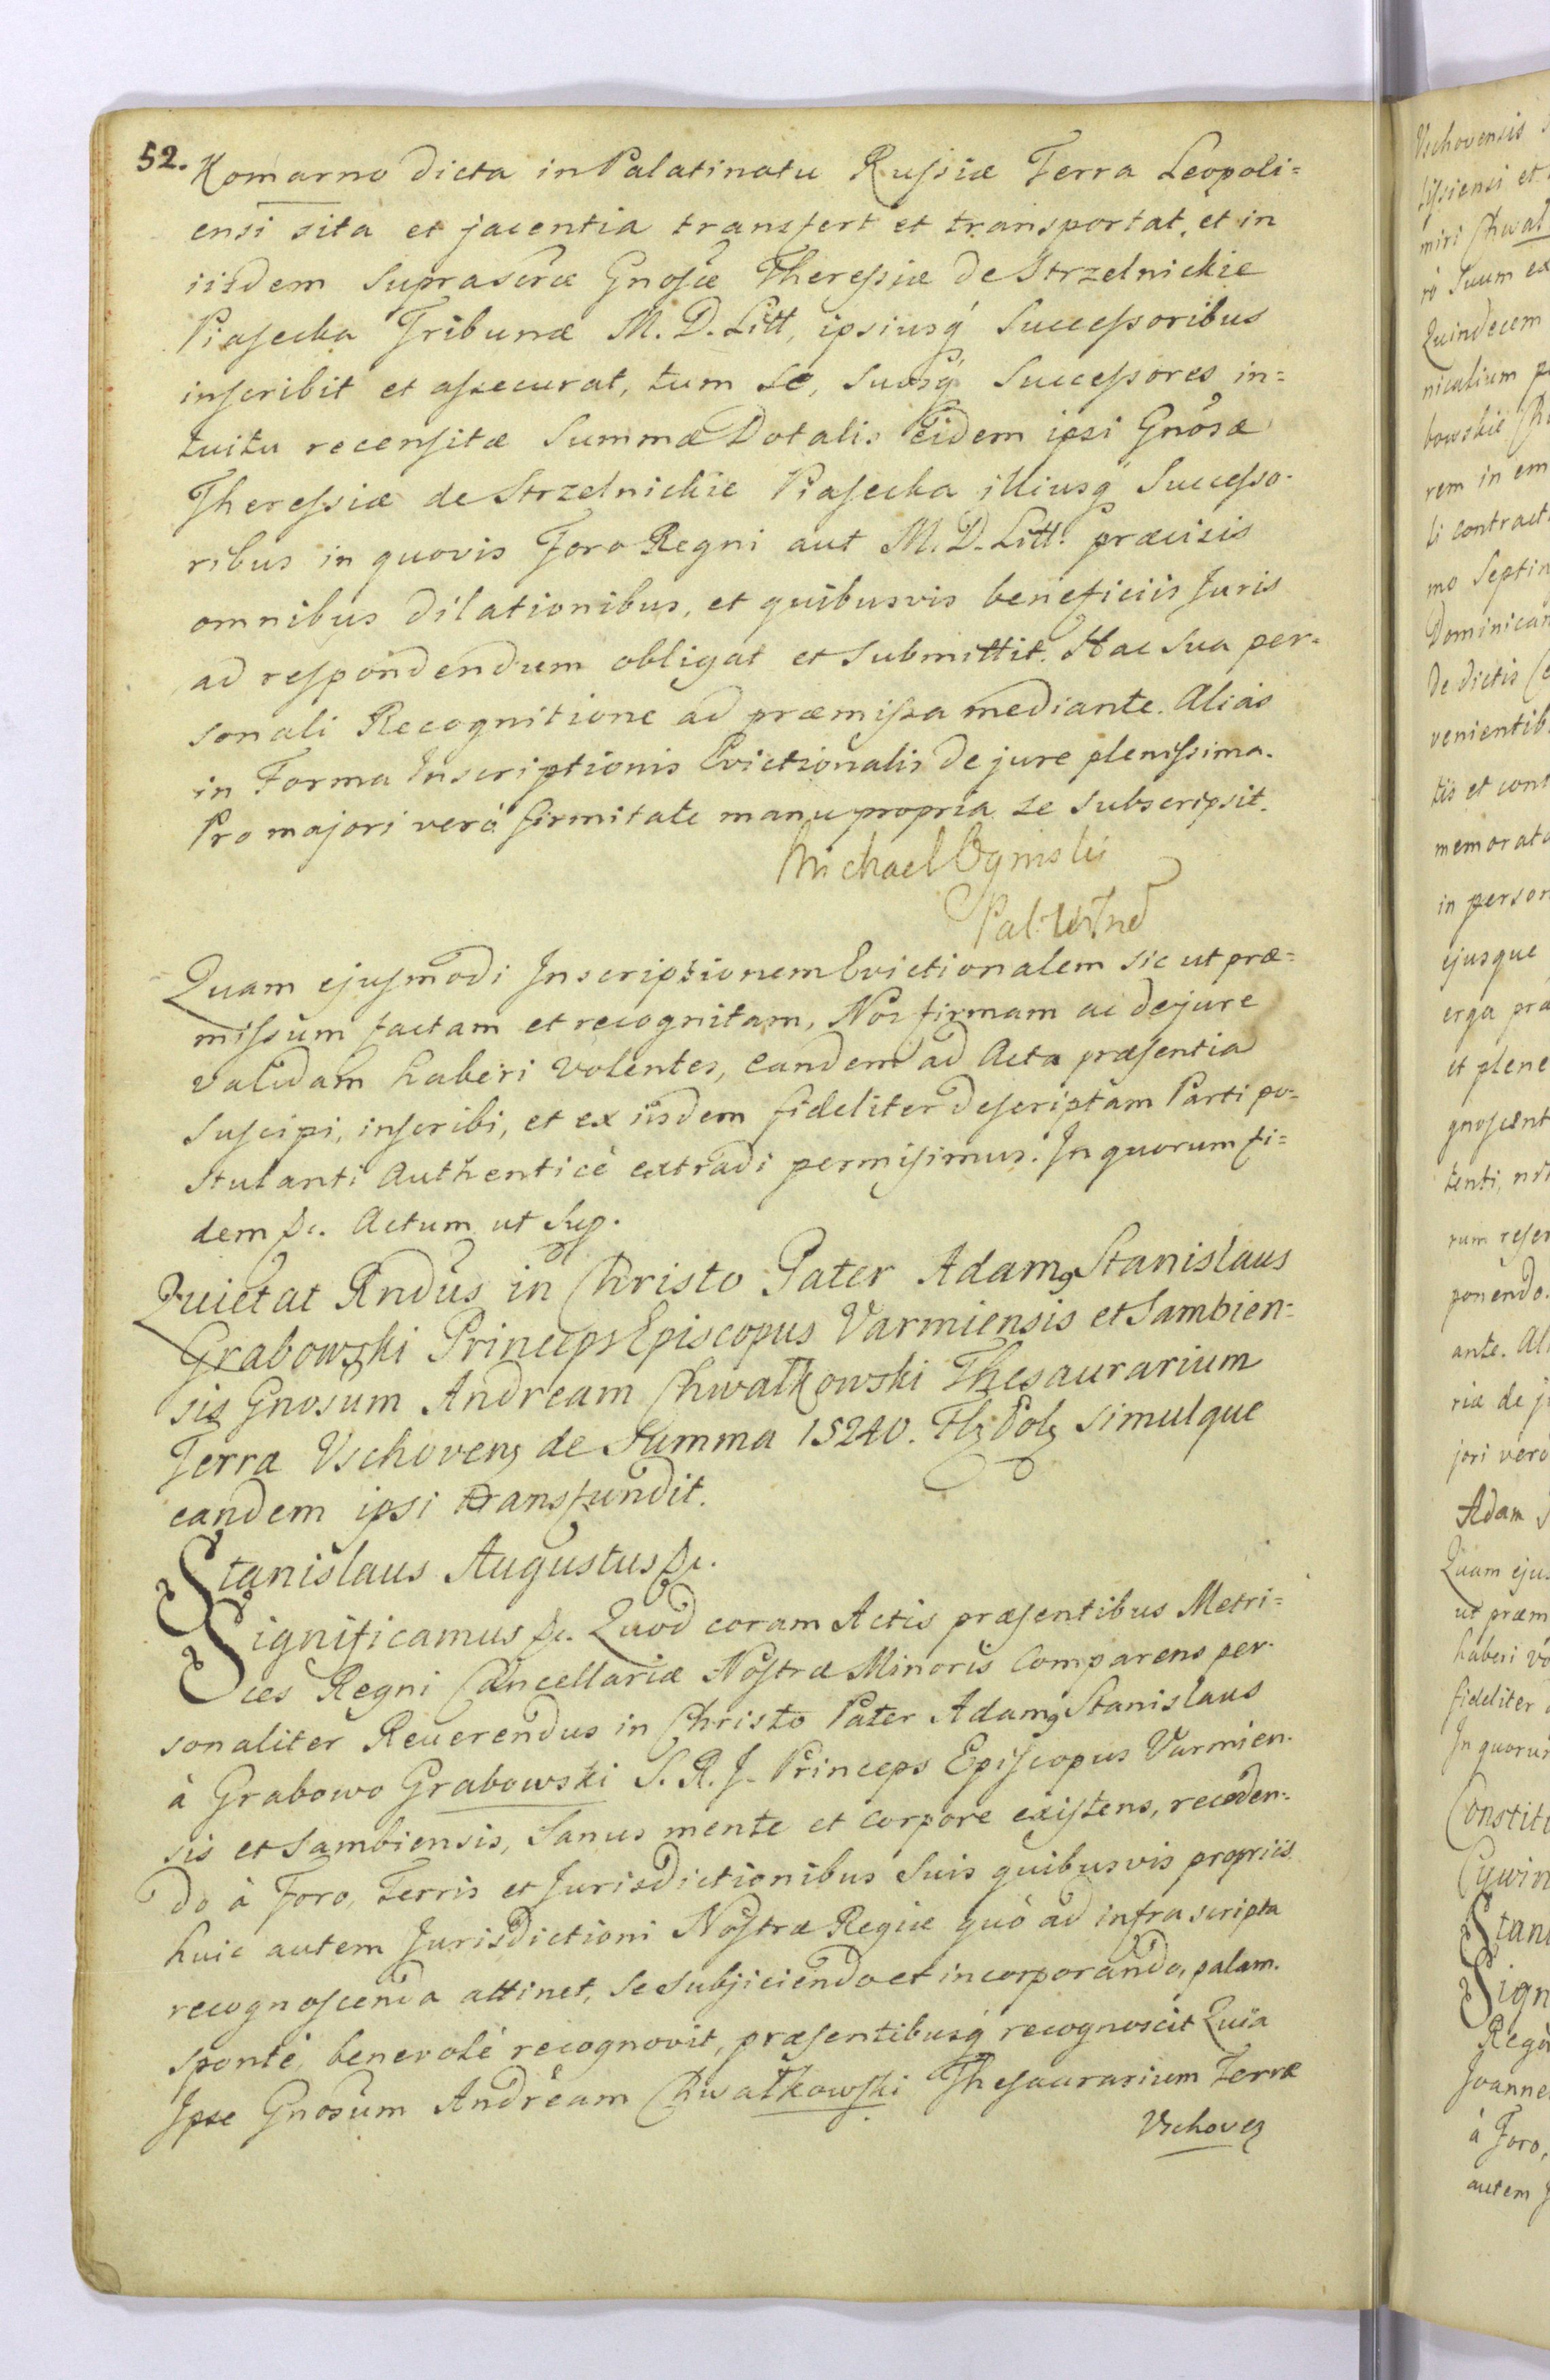 52. Komarno dicta in Palatinatu Russiæ Terra Leopoli=
ensi sita et jacentia transfert et transportat, et in
iisdem Suprascræ Gnosæ Theressiæ de Strzelnickie
Piasecka Tribunæ M. D. Litt, ipsiusq́ Successoribus
inscribit et assecurat, tum se, Suosq́ Successores in=
tuitu recensitæ Summæ Dotalis Eidem ipsi Gnosæ
Theressiæ de Strzelnickie Piasecka illiusq́ Successo-
ribus in quovis Foro Regni aut M. D. Litt. præcisis
omnibus dilationibus, et quibusvis beneficiis Juris
ad respondendum obligat et Submittit. Hac Sua per-
sonali Recognitione ad præmissa mediante. Alias
in Forma Inscriptionis Evictionalis de jure plenissima.
Pro majori verò firmitate manu propria se Subscripsit.
Michael Ogniski
Quam ejusmodi Inscriptionem Evictionalem sic ut præ=
missum factam et recognitam, Nos firmam ac de jure
validam haberi volentes, eandem ad Acta præsentia
Suscipi, inscribi, et ex iisdem fideliter descriptam Parti po-
stulanti Authenticè extradi permisimus. In quorum fi=
dem &c. Actum ut Sup.
Quietat Rndus in Christo Pater Adamꝰ Stanislaus
Grabowski Princeps Episcopus Varmiensis et Sambien=
sis Gnosum Andream Chwałkowski Thesaurarium
Terræ Vschovenꝫ de Summa 15240. Flꝫ Polꝫ simulque
eandem ipsi transfundit.
Stanislaus Augustus &c.
Significamus &c. Quod coram Actis præsentibus Metri=
ces Regni Cancellariæ Nostræ Minoris Comparens per-
sonaliter Reverendus in Christo Pater Adamꝰ Stanislaus
à Grabowo Grabowski S. R. J. Princeps Episcopus Varmien-
sis et Sambiensis, Sanus mente et corpore existens, receden-
do à Foro, Terris et Jurisdictionibus Suis quibusvis propriis
huic autem Jurisdictioni Nostræ Regiæ quò ad infrascripta
recognoscenda attinet, Se Subjiciendo et incorporando, palam.
sponté, benevolé recognovit, præsentibusq́ recognoscit Quia
Ipse Gnosum Andream Chwałkowski Thesaurarium Terræ
Vschovꝫ